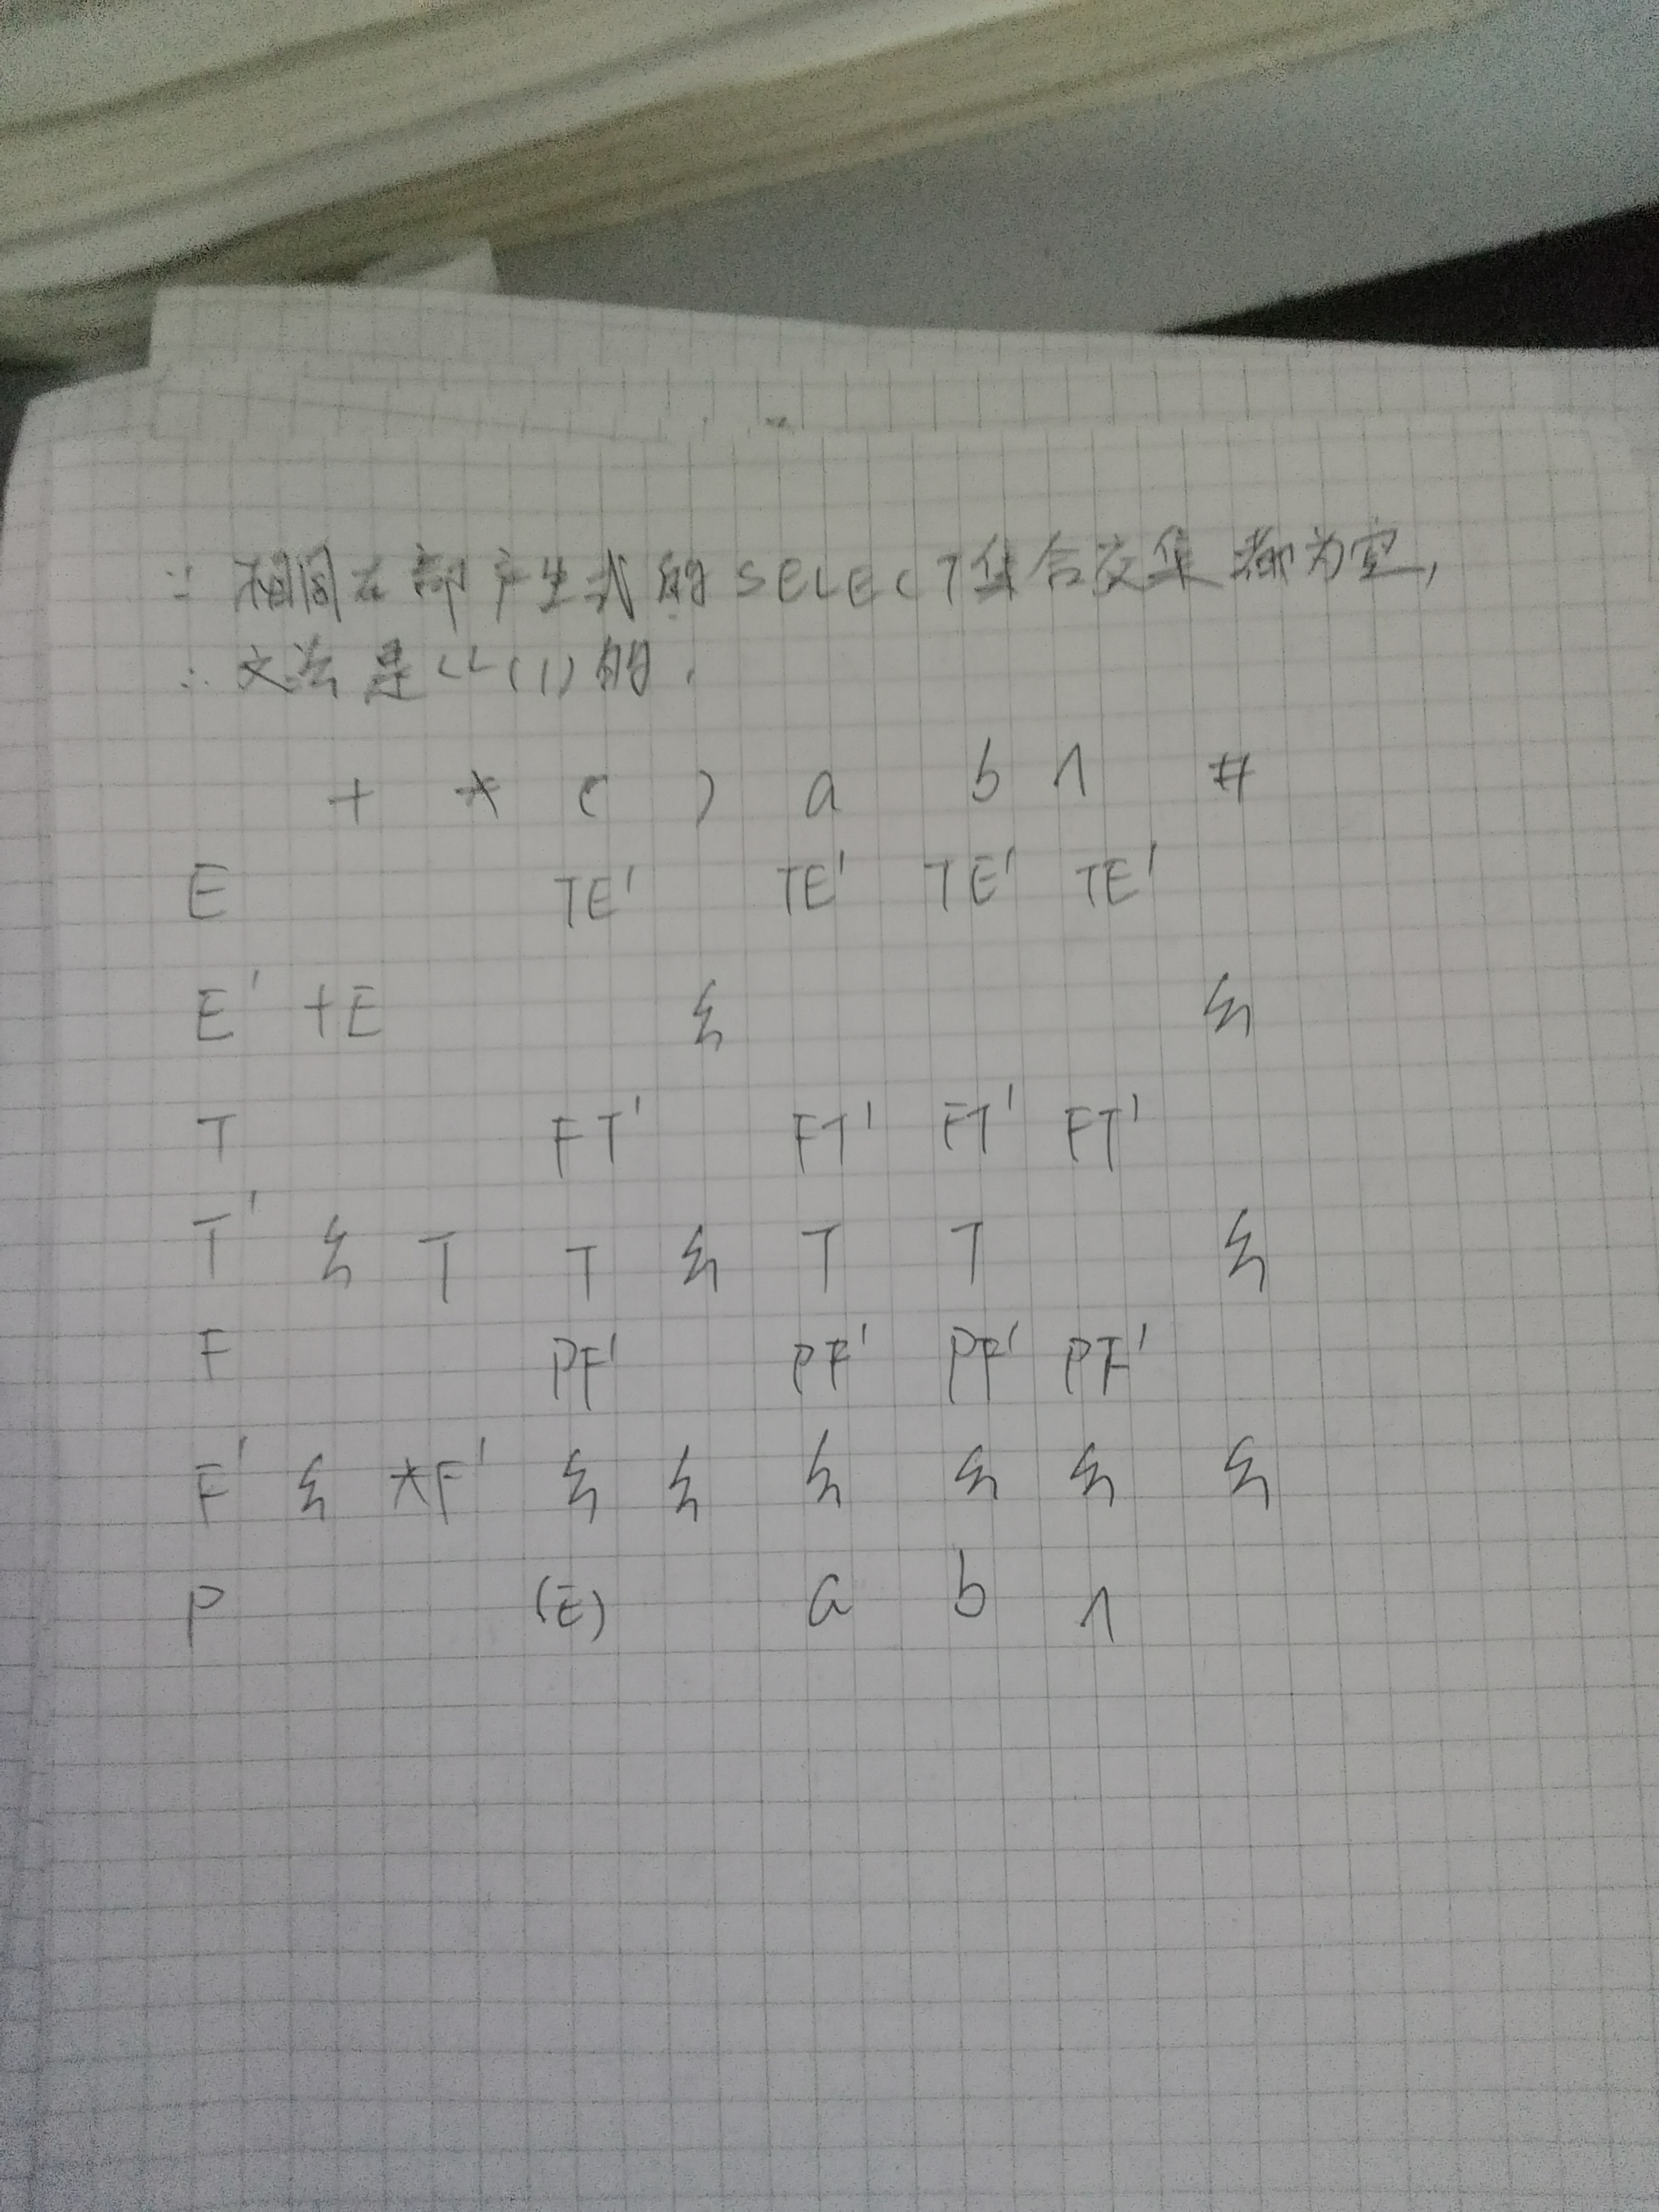 ∵ 相同左部产生式的SELECT集合交集都为空,
∴ 文法是LL(1)的.
+ * ( ) a b ∧ #
E TE' TE' TE' TE'
E' +E ε ε
T FT' FT' FT' FT'
T' ε T T ε T T ε
F PF' PF' PF' PF'
F' ε *F' ε ε ε ε ε ε
P (E) a b ∧